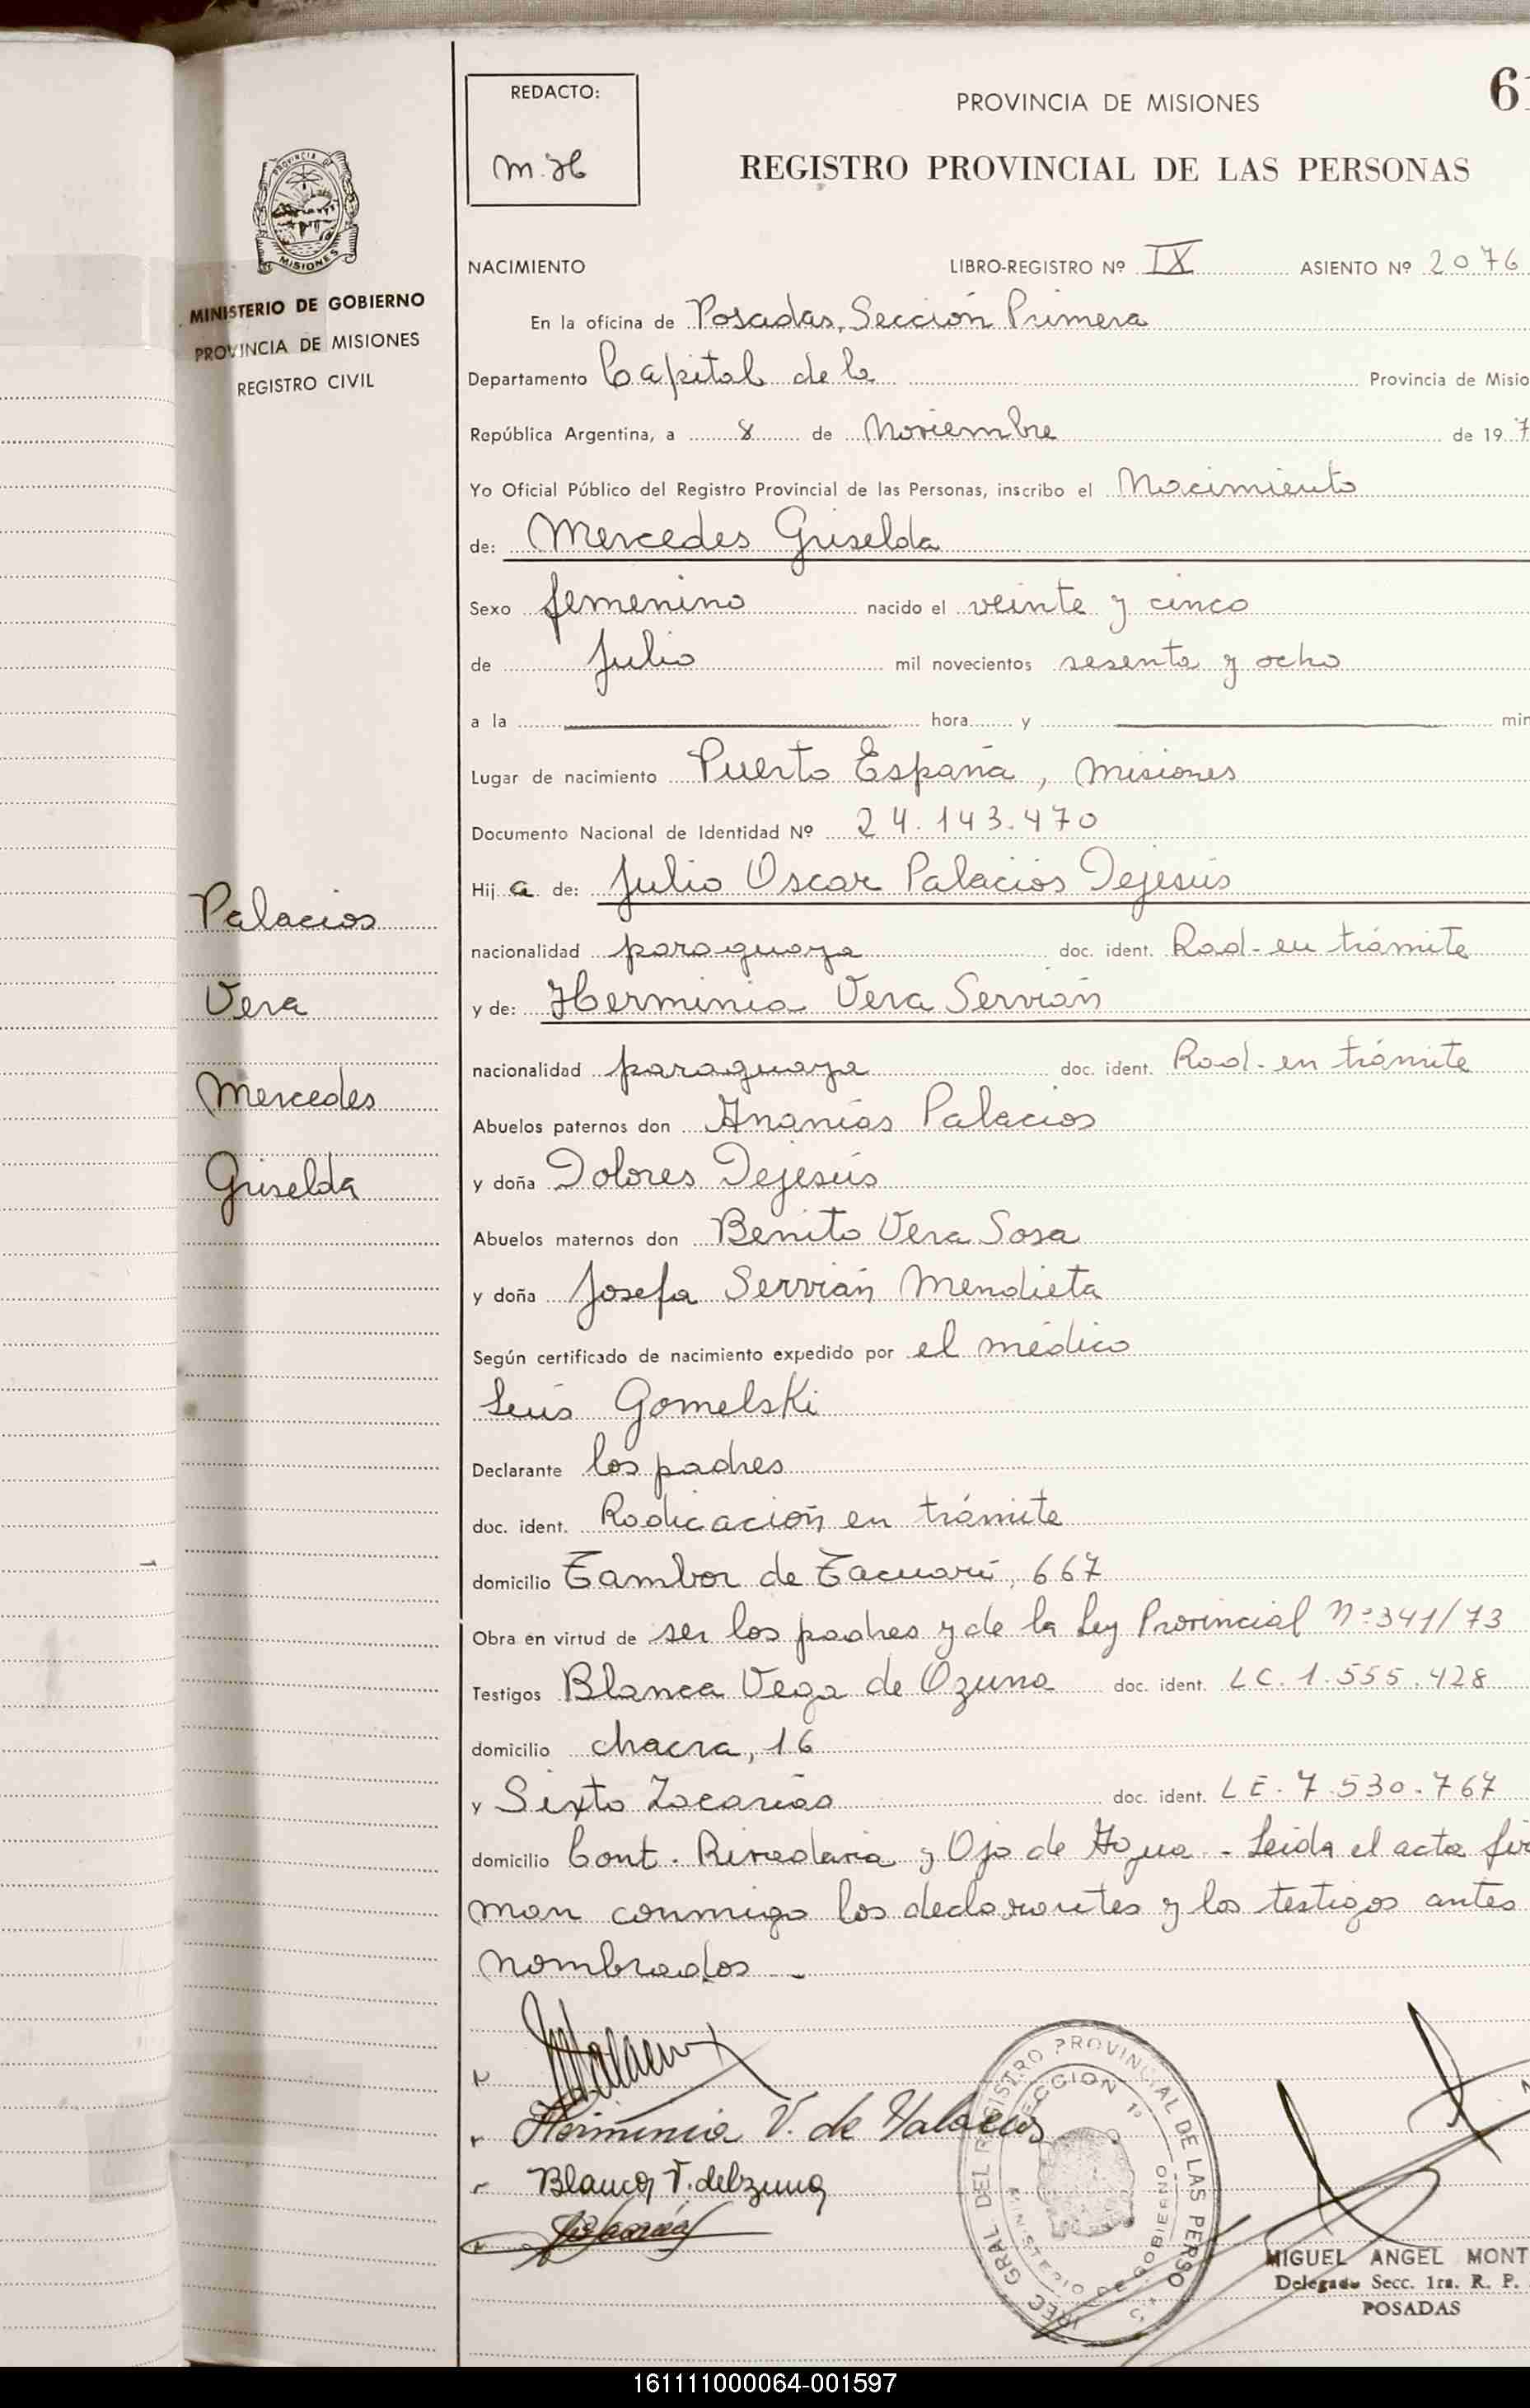 REDACTO:
M.H
PROVINCIA DE MISIONES
REGISTRO PROVINCIAL DE LAS PERSONAS
PROVINCIA DE
MISIONES
MINISTERIO DE GOBIERNO
PROVINCIA DE MISIONES
REGISTRO CIVIL
NACIMIENTO LIBRO-REGISTRO Nº IX ASIENTO Nº 2076
En la oficina de Posadas, Sección Primera
Departamento Capital de la Provincia de Misio
República Argentina, a 8 de Noviembre de 197
Yo Oficial Público del Registro Provincial de las Personas, inscribo el Nacimiento
de: Mercedes Griselda
Sexo femenino nacido el veinte y cinco
de Julio mil novecientos sesenta y ocho
a la hora y min
Lugar de nacimiento Puerto España, Misiones
Documento Nacional de Identidad Nº 24.143.470
Hija de: Julio Oscar Palacios Dejesús
nacionalidad paraguaya doc. ident. Rad- en trámite
y de: Herminia Vera Servián
nacionalidad paraguaya doc. ident. Rad- en trámite
Abuelos paternos don Ananías Palacios
y doña Dolores Dejesús
Abuelos maternos don Benito Vera Sosa
y doña Josefa Servián Mendieta
Según certificado de nacimiento expedido por el médico
Luis Gomelski
Declarante los padres
doc. ident. Radicación en trámite
domicilio Tambor de Tacuarí, 667
Obra en virtud de ser los padres y de la Ley Provincial Nº 341/73
Testigos Blanca Vega de Ozuna doc. ident. LC. 1.555.428
domicilio chacra, 16
y Sixto Zacarías doc. ident. LE. 7.530.767
domicilio Cont. Rivadavia y Ojo de Agua - Leída el acta fir
man conmigo los declarantes y los testigos antes
nombrados -
Palacios
Vera
Mercedes
Griselda
Herminia V. de Palacios
Blanca V. de Ozuna
REGISTRO PROVINCIAL DE LAS PERSO
SECCION 1º
MINISTERIO DE GOBIERNO
MIGUEL ANGEL MONT
Delegado Secc. 1ra. R. P.
POSADAS
161111000064-001597